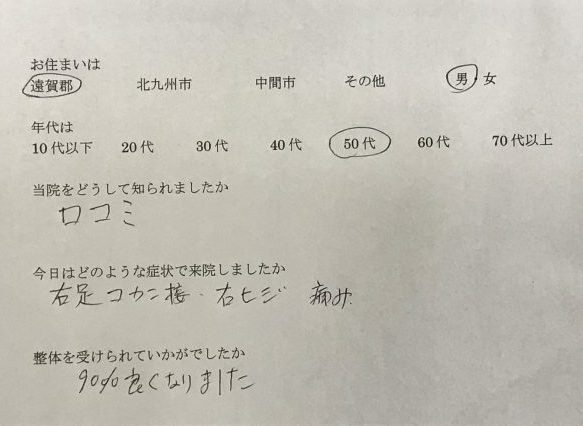 お住まいは
遠賀郡 北九州市 中間市 その他 男・女
年代は
10代以下 20代 30代 40代 50代 60代 70代以上
当院をどうして知られましたか
口コミ
今日はどのような症状で来院しましたか
右足コカン接・右ヒジ 痛み
整体を受けられていかがでしたか
90%良くなりました